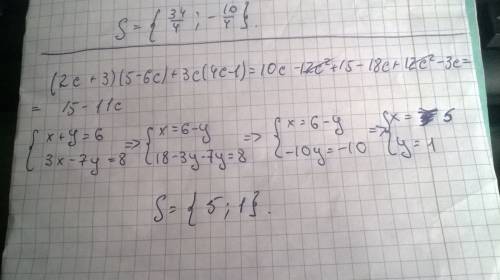 S = { 34/4 ; -10/4 }.
(2c + 3)(5 - 6c) + 3c(4c - 1) = 10c - 12c² + 15 - 18c + 12c² - 3c =
= 15 - 11c
{ x + y = 6 => { x = 6 - y => { x = 6 - y => { x = 5
{ 3x - 7y = 8 { 18 - 3y - 7y = 8 { -10y = -10 { y = 1
S = { 5 ; 1 }.